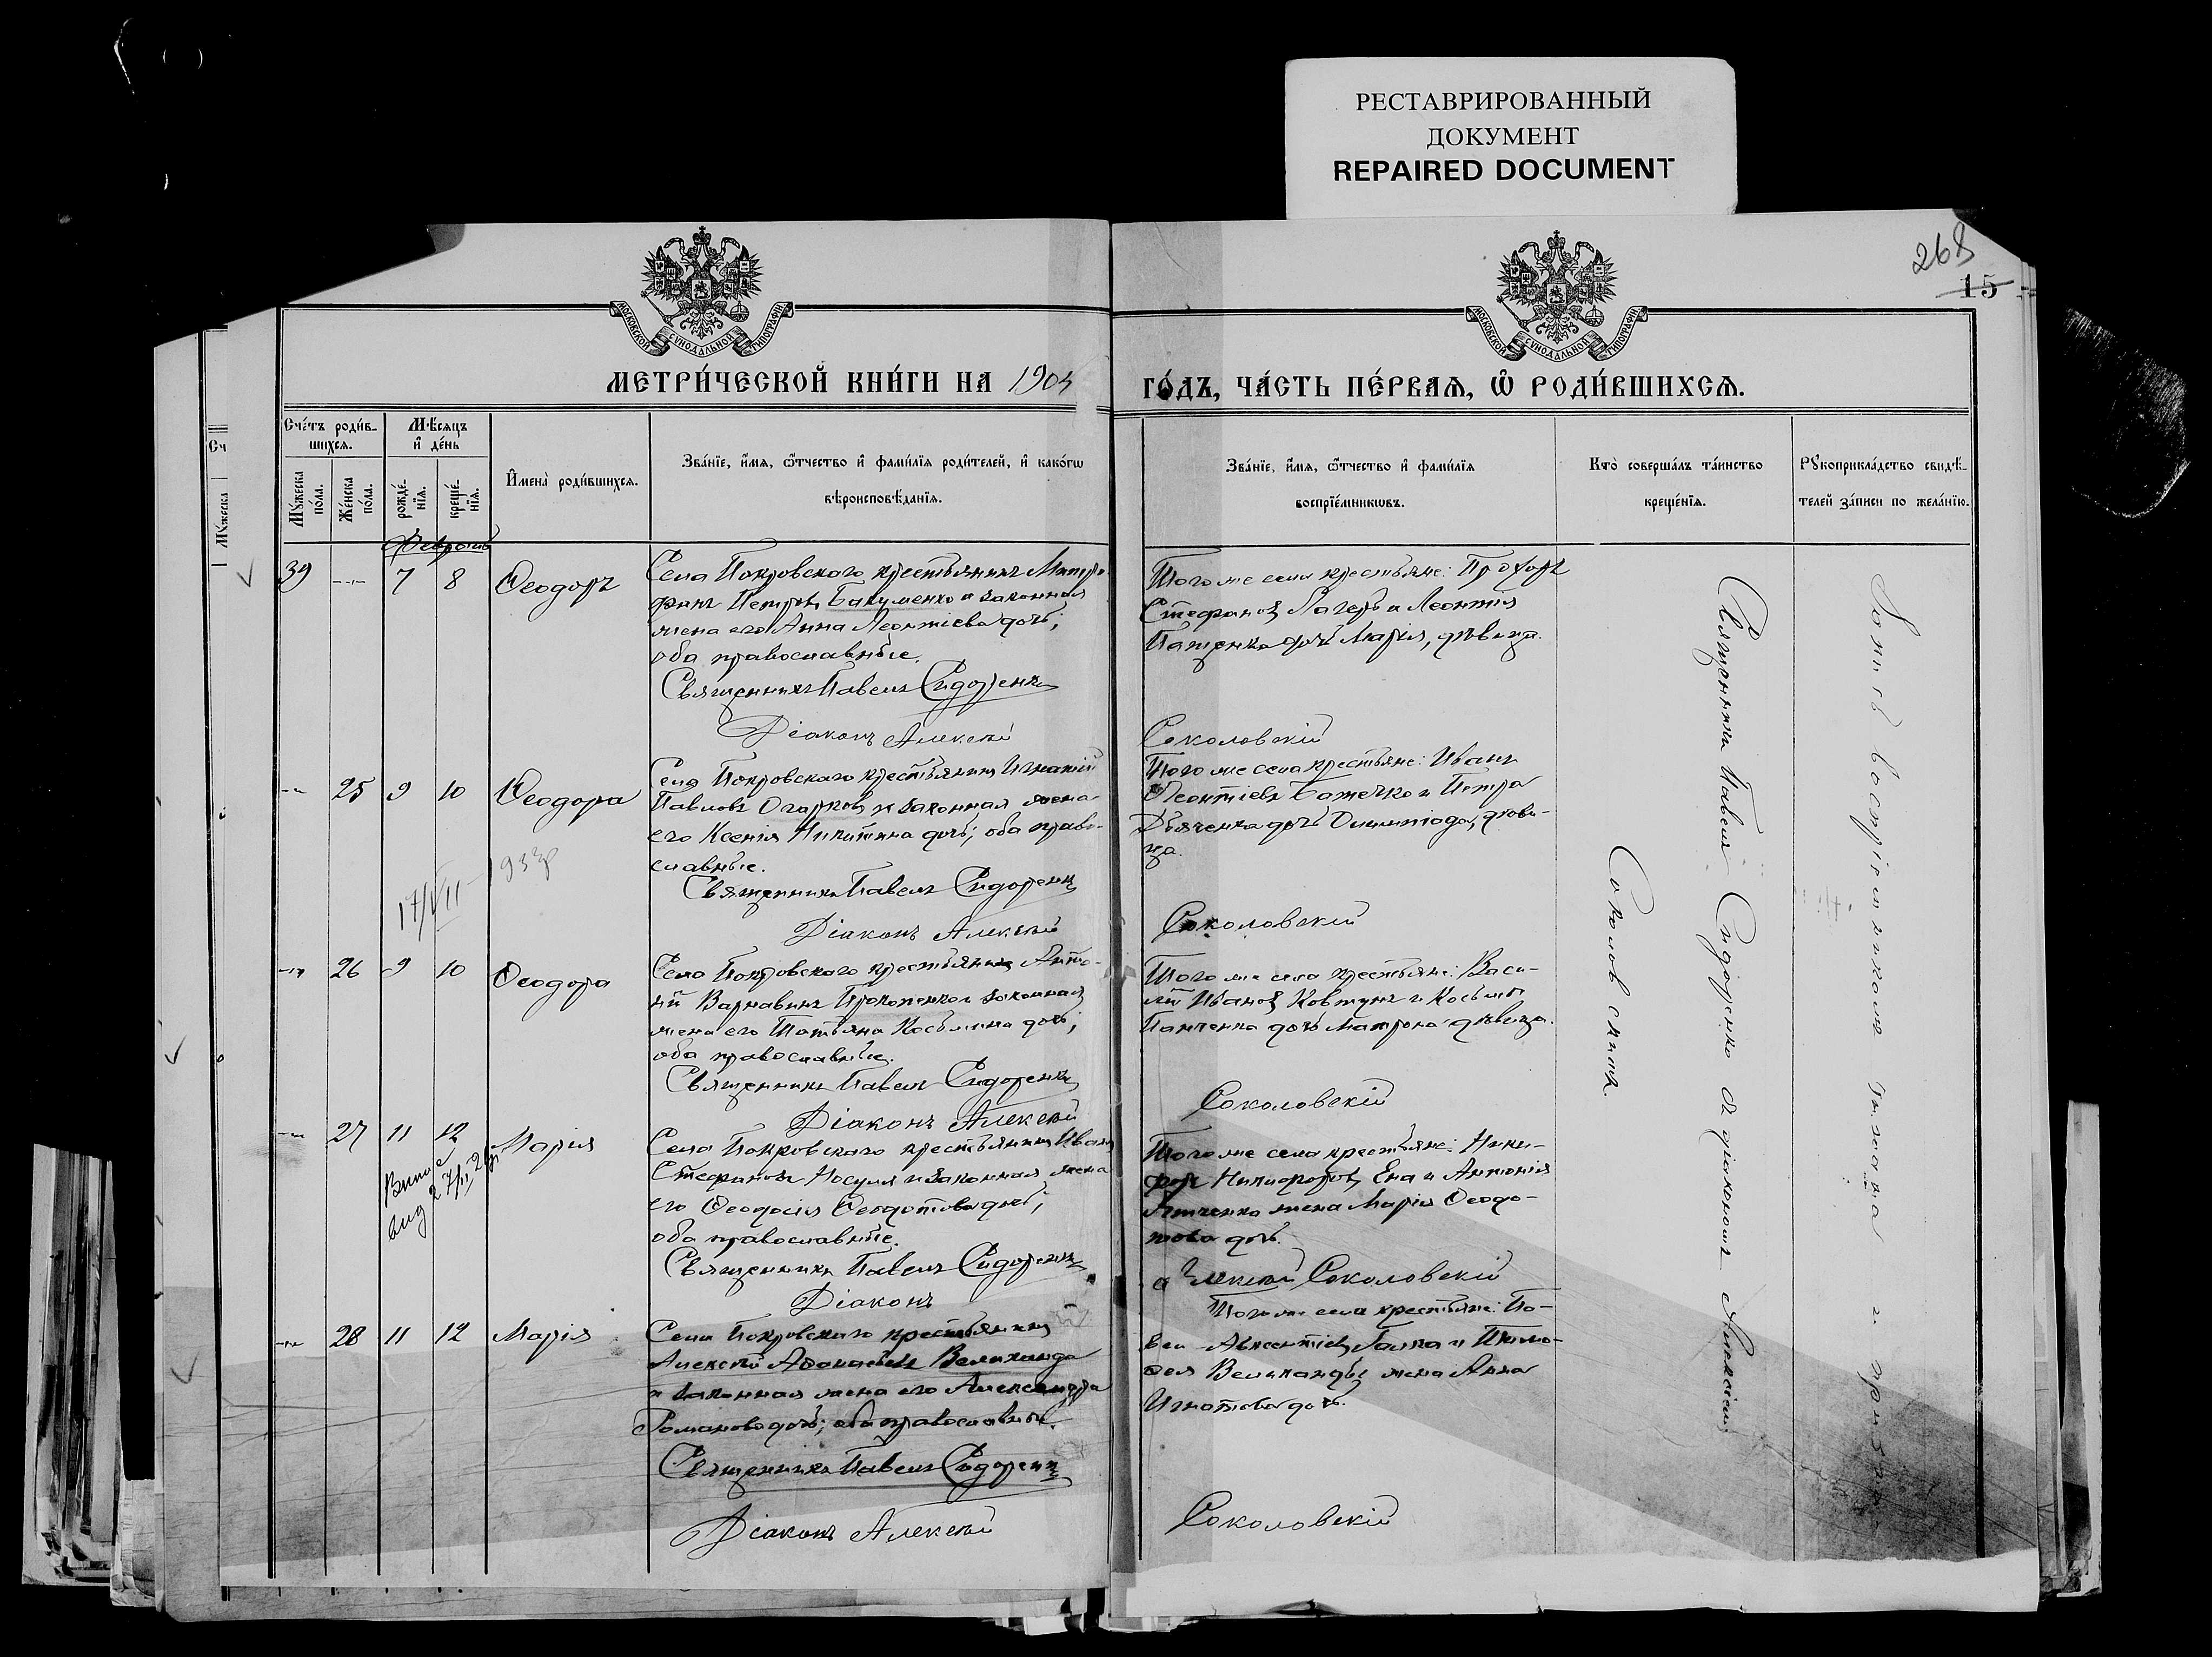 РЕСТАВРИРОВАННЫЙ
ДОКУМЕНТ
REPAIRED DOCUMENT
268
15
МОСКОВСКОЙ СѴНОДАЛЬНОЙ ТИПОГРАФІИ
МОСКОВСКОЙ СѴНОДАЛЬНОЙ ТИПОГРАФІИ
МЕТРИ́ЧЕСКОЙ КНИ́ГИ НА 1904
ГО́ДЪ, ЧА́СТЬ ПЕ́РВАѦ, Ѡ҆ РОДИ́ВШИХСѦ.
Сч
Мꙋ́жеска
Сче́тъ роди́в-
шихсѧ.
Мꙋ́жеска по́ла.
Же́нска по́ла.
Мѣ́сяцъ
и҆ де́нь
рожде́-
нїѧ.
креще́-
нїѧ.
И҆мена̀ роди́вшихсѧ.
Зва́нїе, и҆́мѧ, ѻ҆́тчество и҆ фами́лїѧ роди́телей, и҆ како́гѡ
вѣроисповѣ́данїѧ.
Зва́нїе, и҆́мѧ, ѻ҆́тчество и҆ фами́лїѧ
воспрїе́мникѡвъ.
Кто̀ соверша́лъ та́инство
креще́нїѧ.
Рꙋкоприкла́дство свидѣ́-
телей за́писи по жела́нїю.
Февраль
39 7 8 Ѳеодоръ
Села Покровскаго крестьянинъ Митро-
фанъ Петровъ Бакуменко и законная
жена его Анна Леонтіева дочь;
оба православные.
Священникъ Павелъ Сидоренко
Діаконъ Алексѣй
Того же села крестьяне: Прохоръ
Стефановъ Лагерь и Леонтія
Пащенка дочь Марія, дѣвица.
Соколовскій
25 9 10 Ѳеодора
Села Покровскаго крестьянинъ Игнатій
Павловъ Огарковъ и законная жена
его Ксенія Никитина дочь; оба право-
славные.
Священникъ Павелъ Сидоренко
Діаконъ Алексѣй
17/VII 933р
Того же села крестьяне: Иванъ
Леонтіевъ Божечко и Петра
Дьяченка дочь Олимпіада, дѣви-
ца.
Соколовскій
26 9 10 Ѳеодора
Села Покровскаго крестьянинъ Анто-
ній Варнавинъ Прокопенко и законная
жена его Татьяна Косьмина дочь;
оба православные.
Священникъ Павелъ Сидоренко
Діаконъ Алексѣй
Того же села крестьяне: Васи-
лій Ивановъ Ковтунъ и Косьмы
Панченка дочь Матрона дѣвица.
Соколовскій
27 11 12 Марія
Села Покровскаго крестьянинъ Иванъ
Стефановъ Носуля и законная жена
его Ѳеодосія Ѳеодотова дочь;
оба православные.
Священникъ Павелъ Сидоренко
Діаконъ
Того же села крестьяне: Ники-
форъ Никифоровъ Ена и Антонія
жена Марія Ѳеодо-
това дочь.
Алексѣй Соколовскій
28 11 12 Марія
Села Покровскаго крестьянинъ
Алексѣй Аѳанасьевъ Великанда
и законная жена его Александра
Романова дочь; оба православные.
Священникъ Павелъ Сидоренко
Діаконъ Алексѣй
Того же села крестьяне: Па-
велъ Авксентіевъ Галка и Тимо-
ѳея Великанды жена Анна
Игнатова дочь.
Соколовскій
Священникъ Павелъ Сидоренко съ діакономъ Алексіемъ
Соколовскимъ.